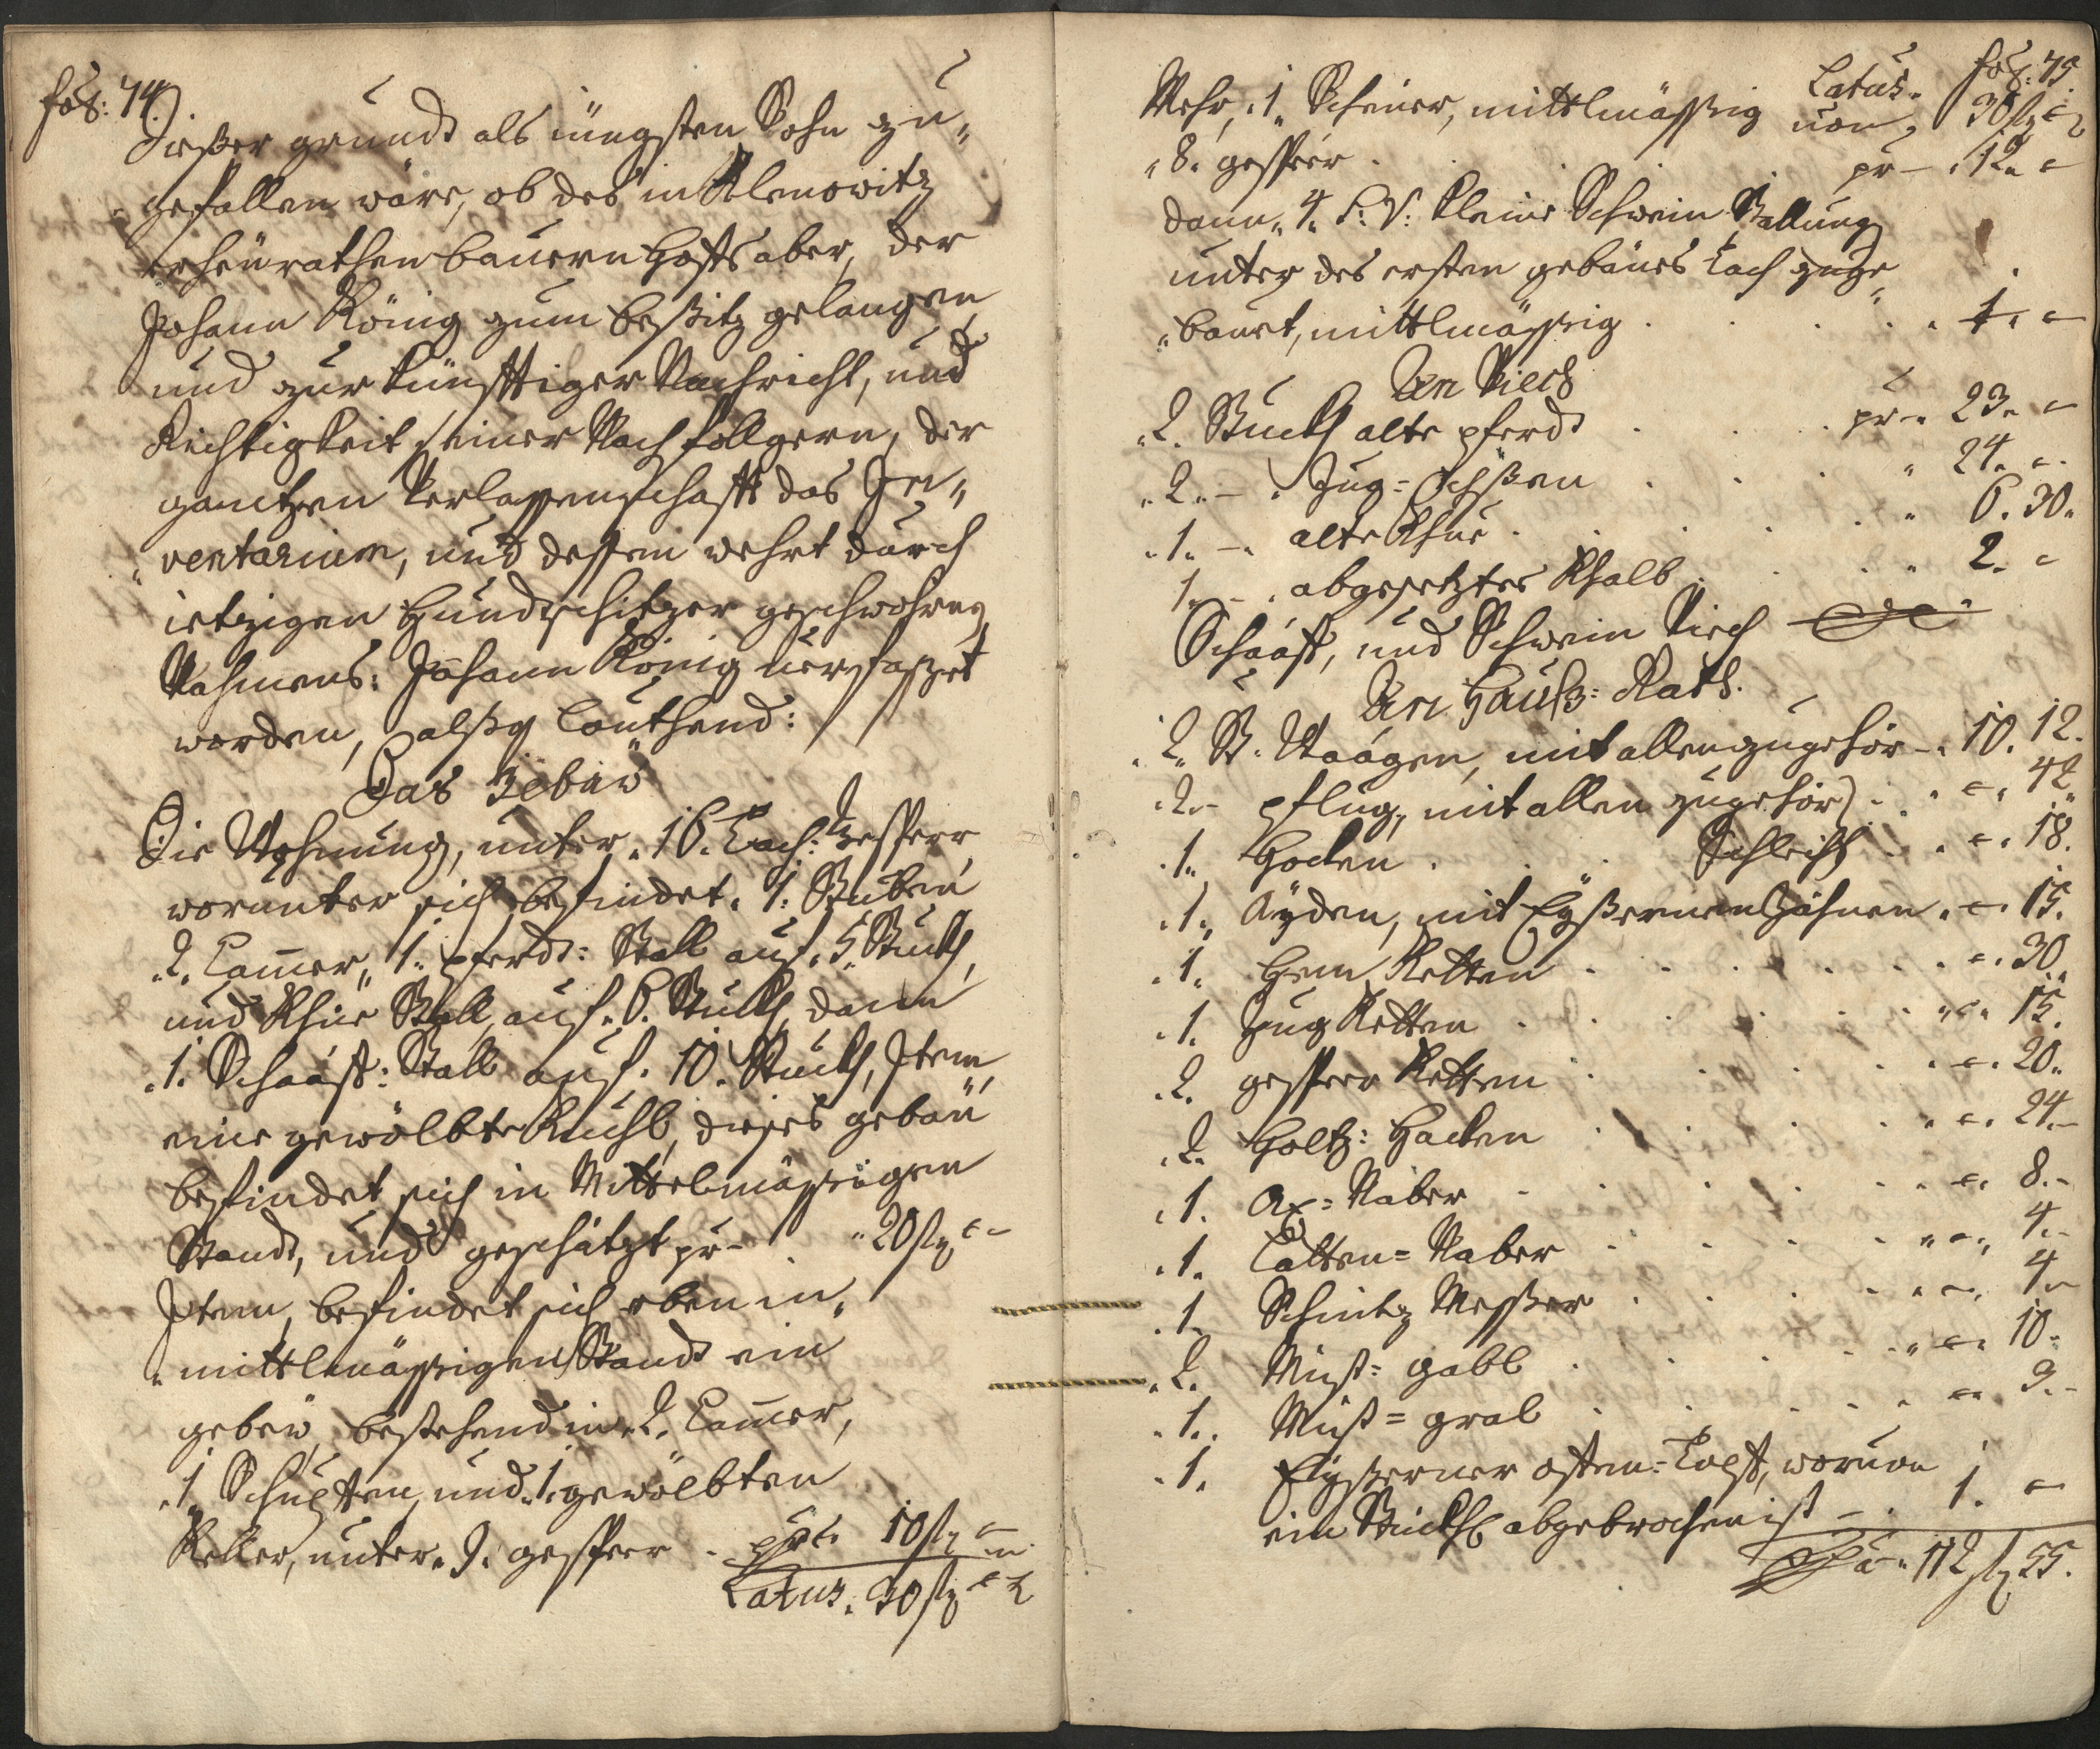 fol: 74.
Dießer grundt als jüngsten Sohn zu„
„gefallen wäre, ob des in Klenowitz
erheürathen Bauern Hofts aber, der
Johann König zum besitz gelangen,
und zur künfftiger Nachricht, und
Richtigkeit seiner Nachfollgern, der
gantzen Verlassenschafft das In„
„ventarium, und dessen wehrt durch
ietzigen Hundschitzer geschwohrne
Nahmens: Johann König verfasset
worden, alßo lauthend:
Das Gebäw
Die Wohnung, unter „16. Tach: Gesperr,
worunter sich befindet. 1. Stuben
„2. Cammer, 1. pferdt: Stall auf. 5. Stuckh,
und Khüe Stall, auf. 6. Stuckh, dann
„1. Schaaff: Stall auf. 10. Stuckh, Item
eine gewölbte Kuchl, dieses gebäu
befindet sich in Mittelmässigen
Standt, und geschätzt pr – „20 fl „ –
Item, befindet sich eben in„
„mittlmässigen Standt ein
gebew, bestehend in „2. Cammer,
„1 Schupffen, und „1. gewölbten
Keller, unter „9. gesperr . pr „ 10 fl –
Latus. 30 fl – „
fol: 75.
Latus. 30 fl „
Mehr, „1„ Scheuer, mittlmässig von
„8. gesperr . . . pr – „12„ –
dann „4. S: V: kleine Schwein Stallung
unter des ersten gebäues Tach zuge„
„bauet, mittlmässig . . . „1„ –
An Viech
„2. Stuckh alte pferdt . . . pr „ 23„ –
„2„ – „ Zug=Ochßen . . . „ 24„ –
„1„ – „ alte Khue . . . „ 6. 30„
1„ – „ abgesetztes Khalb . . . „ 2„ –
Schaaff, und Schwein Viech
An Hauß: Rath.
„2„ St. Waagen, mit allen zugehör – „10. 12.
„2„ – pflug, mit allen zugehör . „ – „ 42„
„1„ Hocken . . Schlecht . „ – „ 18.
„1„ Äyden, mit Eyßernen Zähnen „ – „ 15.
„1„ Hem Ketten . . . – „ 30„
„1. Zug Ketten . . . „ – „ 15.
„2. gesperr Ketten . . . – „ 20„
„2. Holtz: Hacken . . . „ – „ 24„–
„1. Ax=Näber . . . – „ 8.–
„1. Latten=Naber . . . „ – „ 4.–
„1 Schnitz Messer . . . „ – „ 4„–
„2. Mist: gabl . . . „ – „ 10–
„1. Mist=gral . . . – „ 9.–
„1. Eyßerner offen=Topff, wovon
ein Stückhl abgebrochen ist – „ 1. –
Sa. „ 112 fl 55.